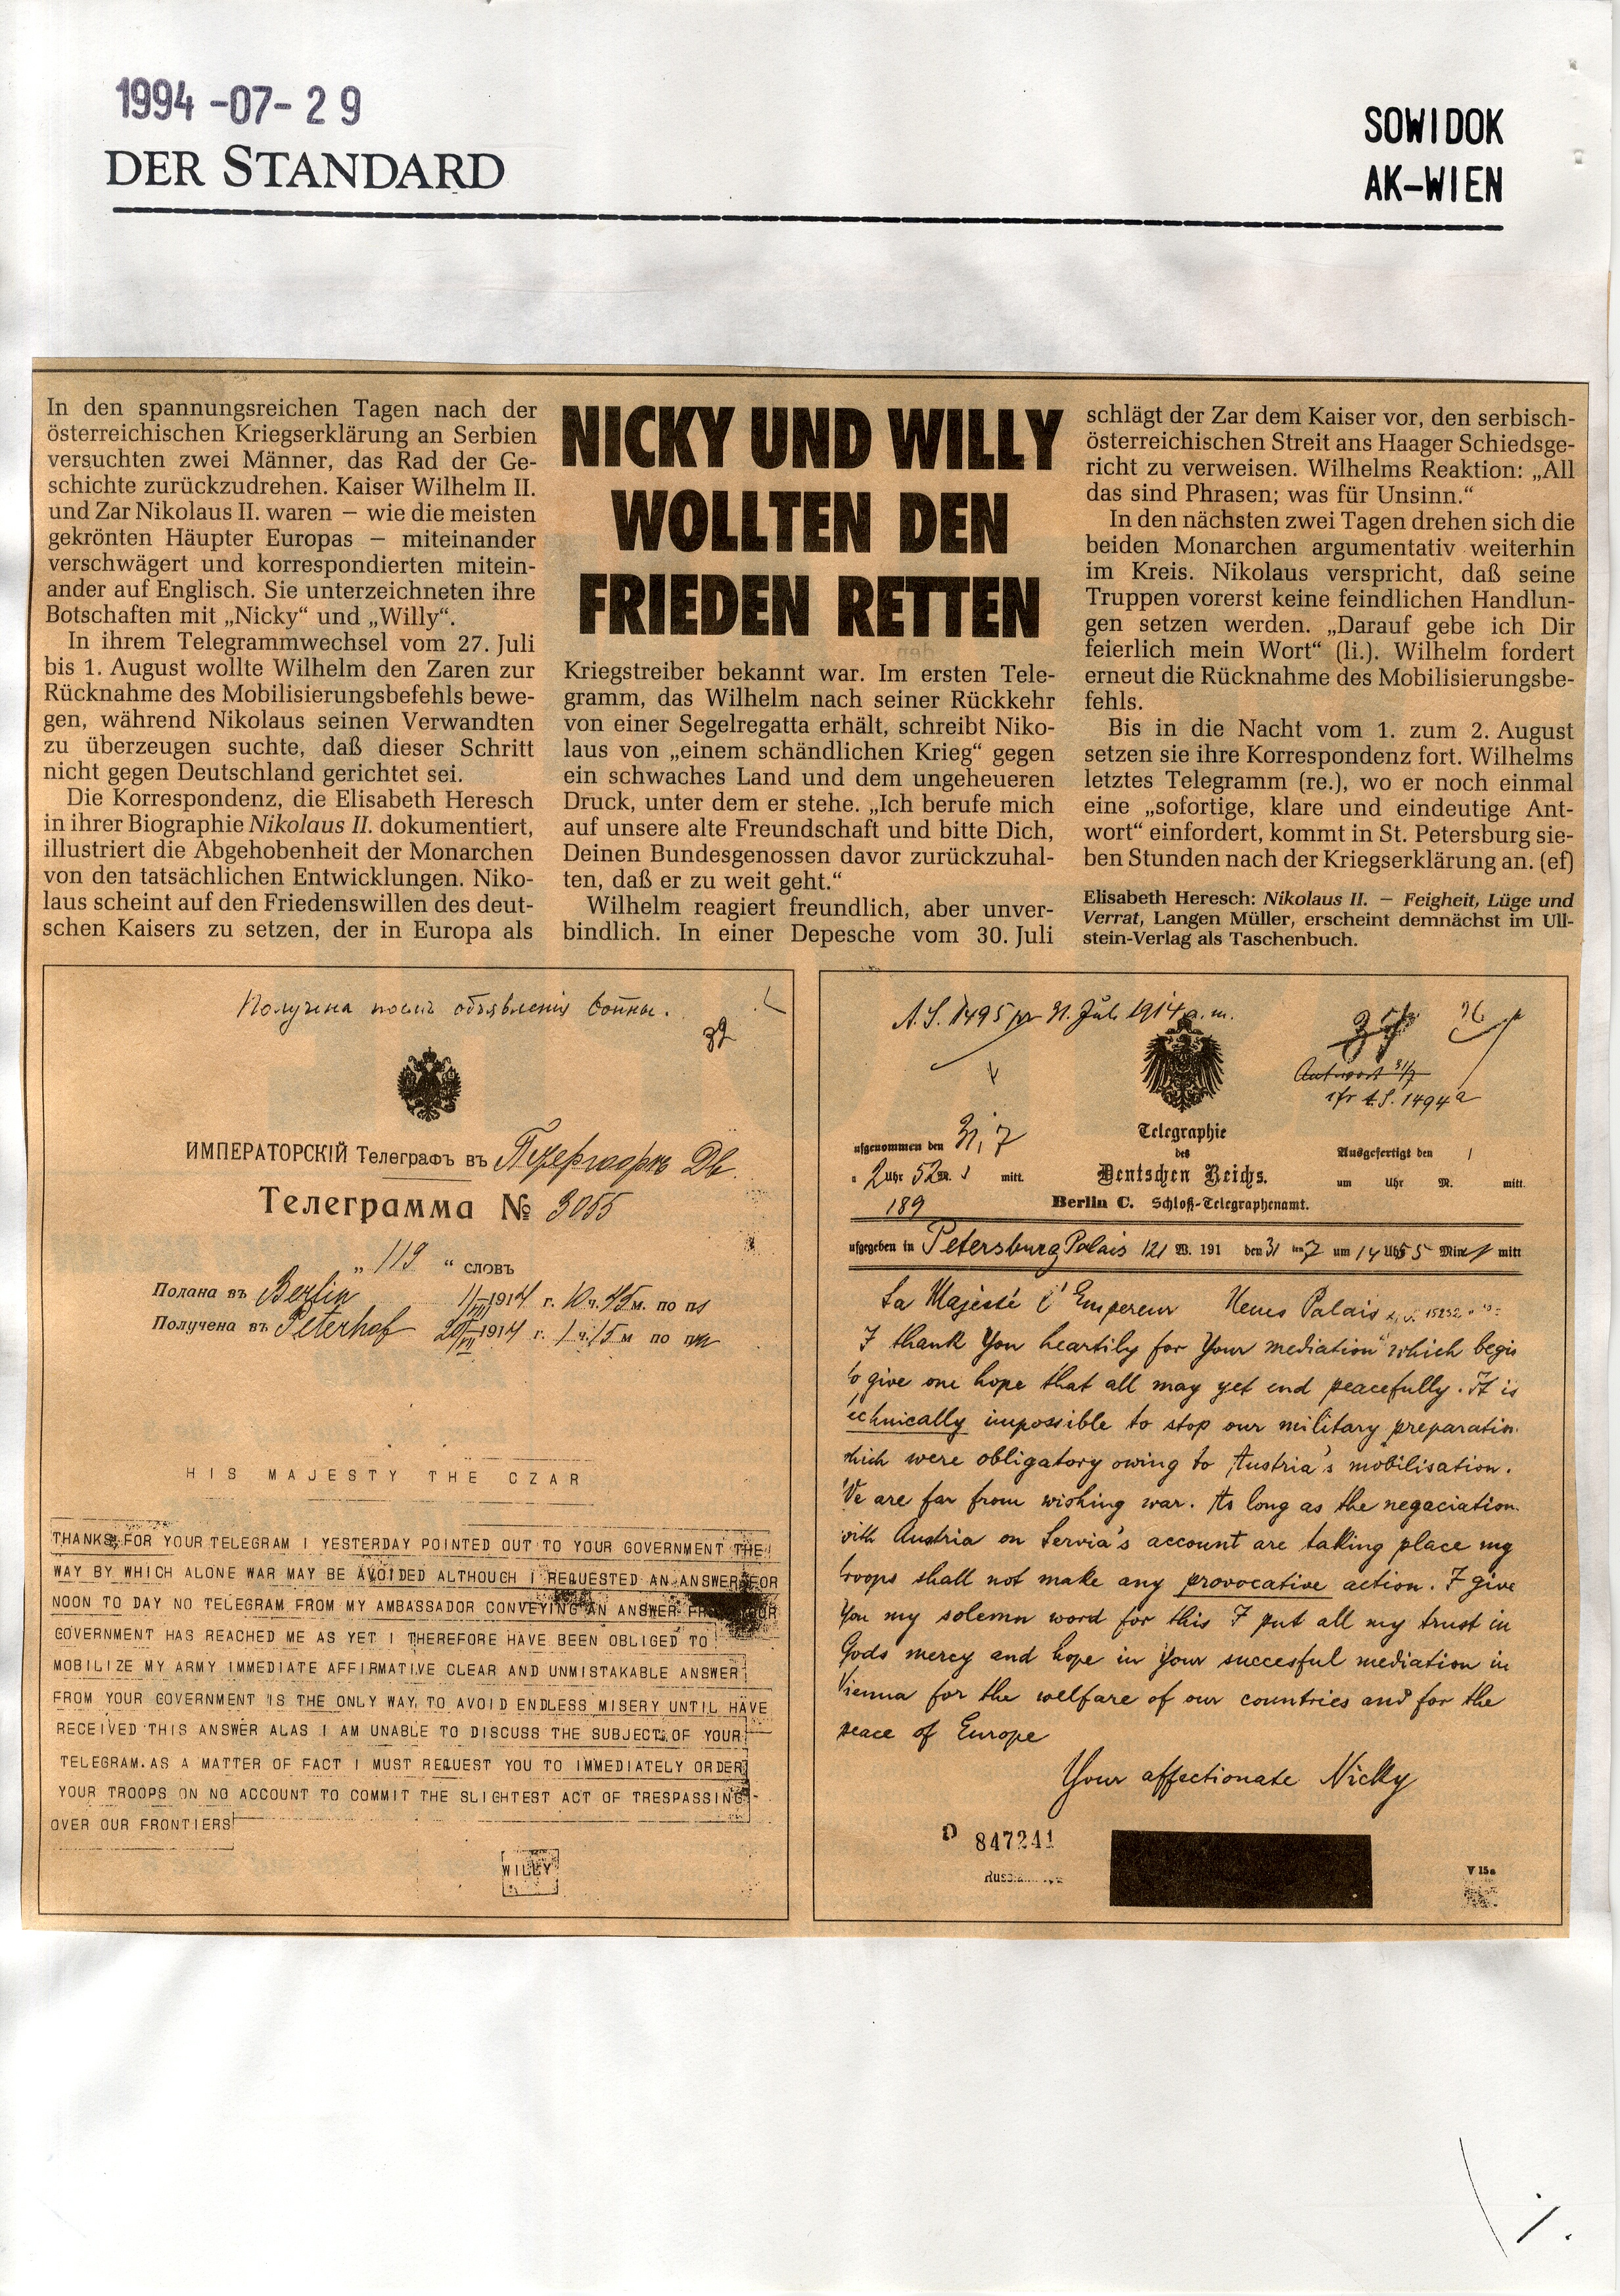 1994-07-29
DER STANDARD
SOWIDOK
AK-WIEN
In den spannungsreichen Tagen nach der
österreichischen Kriegserklärung an Serbien
versuchten zwei Männer, das Rad der Ge-
schichte zurückzudrehen. Kaiser Wilhelm II.
und Zar Nikolaus II. waren – wie die meisten
gekrönten Häupter Europas – miteinander
verschwägert und korrespondierten mitein-
ander auf Englisch. Sie unterzeichneten ihre
Botschaften mit „Nicky“ und „Willy“.
In ihrem Telegrammwechsel vom 27. Juli
bis 1. August wollte Wilhelm den Zaren zur
Rücknahme des Mobilisierungsbefehls bewe-
gen, während Nikolaus seinen Verwandten
zu überzeugen suchte, daß dieser Schritt
nicht gegen Deutschland gerichtet sei.
Die Korrespondenz, die Elisabeth Heresch
in ihrer Biographie Nikolaus II. dokumentiert,
illustriert die Abgehobenheit der Monarchen
von den tatsächlichen Entwicklungen. Niko-
laus scheint auf den Friedenswillen des deut-
schen Kaisers zu setzen, der in Europa als
NICKY UND WILLY
WOLLTEN DEN
FRIEDEN RETTEN
Kriegstreiber bekannt war. Im ersten Tele-
gramm, das Wilhelm nach seiner Rückkehr
von einer Segelregatta erhält, schreibt Niko-
laus von „einem schändlichen Krieg“ gegen
ein schwaches Land und dem ungeheueren
Druck, unter dem er stehe. „Ich berufe mich
auf unsere alte Freundschaft und bitte Dich,
Deinen Bundesgenossen davor zurückzuhal-
ten, daß er zu weit geht.“
Wilhelm reagiert freundlich, aber unver-
bindlich. In einer Depesche vom 30. Juli
schlägt der Zar dem Kaiser vor, den serbisch-
österreichischen Streit ans Haager Schiedsge-
richt zu verweisen. Wilhelms Reaktion: „All
das sind Phrasen; was für Unsinn.“
In den nächsten zwei Tagen drehen sich die
beiden Monarchen argumentativ weiterhin
im Kreis. Nikolaus verspricht, daß seine
Truppen vorerst keine feindlichen Handlun-
gen setzen werden. „Darauf gebe ich Dir
feierlich mein Wort“ (li.). Wilhelm fordert
erneut die Rücknahme des Mobilisierungsbe-
fehls.
Bis in die Nacht vom 1. zum 2. August
setzen sie ihre Korrespondenz fort. Wilhelms
letztes Telegramm (re.), wo er noch einmal
eine „sofortige, klare und eindeutige Ant-
wort“ einfordert, kommt in St. Petersburg sie-
ben Stunden nach der Kriegserklärung an. (ef)
Elisabeth Heresch: Nikolaus II. – Feigheit, Lüge und
Verrat, Langen Müller, erscheint demnächst im Ull-
stein-Verlag als Taschenbuch.
Получена послѣ объявленія войны.
ИМПЕРАТОРСКІЙ Телеграфъ въ Петергофѣ Дв.
Телеграмма № 3055
„ 119 “ словъ
Подана въ Berlin 1914 г. 10 ч. 45 м. по
Получена въ Peterhof 1914 г. 1 ч. 15 м по
HIS MAJESTY THE CZAR
THANKS FOR YOUR TELEGRAM I YESTERDAY POINTED OUT TO YOUR GOVERNMENT THE
WAY BY WHICH ALONE WAR MAY BE AVOIDED ALTHOUGH I REQUESTED AN ANSWER FOR
NOON TO DAY NO TELEGRAM FROM MY AMBASSADOR CONVEYING AN ANSWER FROM YOUR
GOVERNMENT HAS REACHED ME AS YET I THEREFORE HAVE BEEN OBLIGED TO
MOBILIZE MY ARMY IMMEDIATE AFFIRMATIVE CLEAR AND UNMISTAKABLE ANSWER
FROM YOUR GOVERNMENT IS THE ONLY WAY TO AVOID ENDLESS MISERY UNTIL HAVE
RECEIVED THIS ANSWER ALAS I AM UNABLE TO DISCUSS THE SUBJECT OF YOUR
TELEGRAM. AS A MATTER OF FACT I MUST REQUEST YOU TO IMMEDIATELY ORDER
YOUR TROOPS ON NO ACCOUNT TO COMMIT THE SLIGHTEST ACT OF TRESPASSING
OVER OUR FRONTIERS
WILLY
A.S. 1495 pr 31. Juli 1914 a.m.
Antwort 31/7
A.S. 1494
Telegraphie
des
Deutschen Reichs.
Berlin C. Schloß-Telegraphenamt.
ufgenommen den 31, 7
2 Uhr 52 M. mitt.
189
Ausgefertigt den
um Uhr M. mitt.
ufgegeben in Petersburg Palais 121 W. 191 den 31 7 um 1 Uhr 55 Min mitt
Sa Majesté l'Empereur Neues Palais
I thank You heartily for Your mediation which begis
to give one hope that all may yet end peacefully. It is
echnically impossible to stop our military preparation
which were obligatory owing to Austria's mobilisation.
We are far from wishing war. As long as the negaciation
with Austria on Servia's account are taking place my
troops shall not make any provocative action. I give
You my solemn word for this I put all my trust in
Gods mercy and hope in Your succesful mediation in
Vienna for the welfare of our countries and for the
peace of Europe
Your affectionate Nicky
D 847241
V 15a